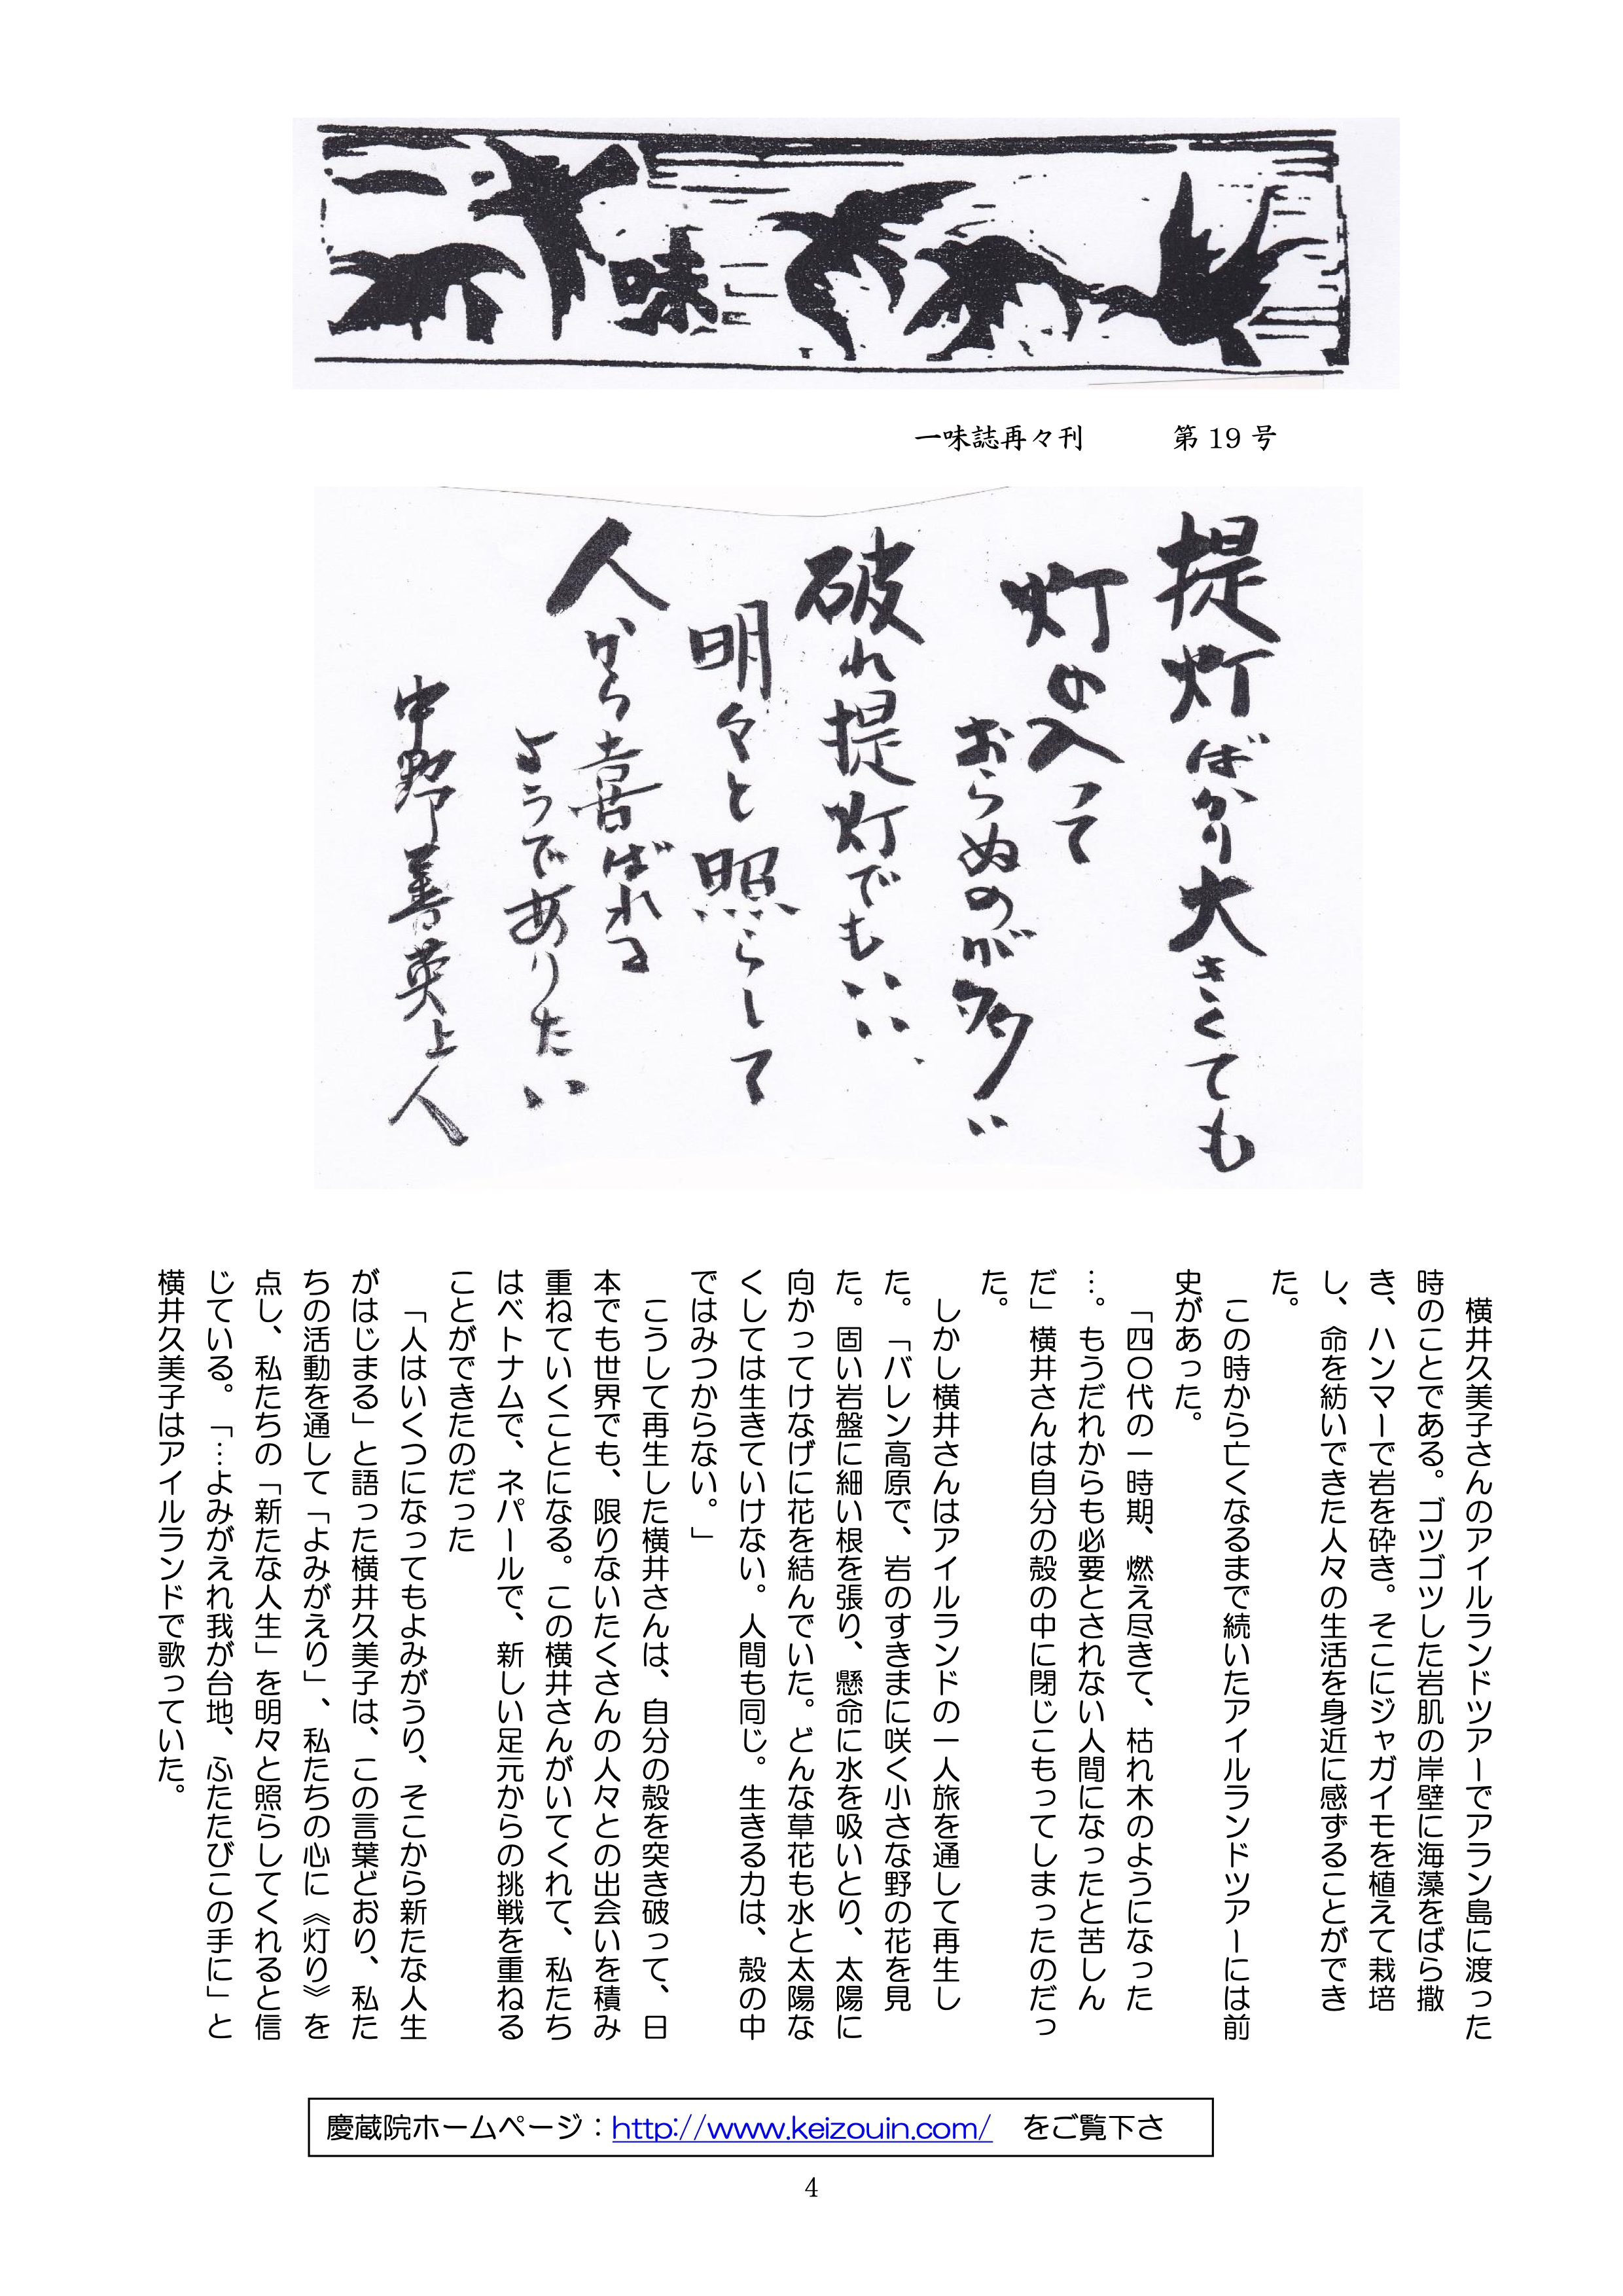 一味
一味誌再々刊　第19号
提灯ばかり大きくても
灯の入って
おらぬのが多い
破れ提灯でもいい、
明々と照らして
人から喜ばれる
ようでありたい
中野善英上人
横井久美子さんのアイルランドツアーでアラン島に渡った
時のことである。ゴツゴツした岩肌の岸壁に海藻をばら撒
き、ハンマーで岩を砕き。そこにジャガイモを植えて栽培
し、命を紡いできた人々の生活を身近に感ずることができ
た。
この時から亡くなるまで続いたアイルランドツアーには前
史があった。
「四〇代の一時期、燃え尽きて、枯れ木のようになった
…。もうだれからも必要とされない人間になったと苦しん
だ」横井さんは自分の殻の中に閉じこもってしまったのだっ
た。
しかし横井さんはアイルランドの一人旅を通して再生し
た。「バレン高原で、岩のすきまに咲く小さな野の花を見
た。固い岩盤に細い根を張り、懸命に水を吸いとり、太陽に
向かってけなげに花を結んでいた。どんな草花も水と太陽な
くしては生きていけない。人間も同じ。生きる力は、殻の中
ではみつからない。」
こうして再生した横井さんは、自分の殻を突き破って、日
本でも世界でも、限りないたくさんの人々との出会いを積み
重ねていくことになる。この横井さんがいてくれて、私たち
はベトナムで、ネパールで、新しい足元からの挑戦を重ねる
ことができたのだった
「人はいくつになってもよみがうり、そこから新たな人生
がはじまる」と語った横井久美子は、この言葉どおり、私た
ちの活動を通して「よみがえり」、私たちの心に《灯り》を
点し、私たちの「新たな人生」を明々と照らしてくれると信
じている。「…よみがえれ我が台地、ふたたびこの手に」と
横井久美子はアイルランドで歌っていた。
慶蔵院ホームページ：http://www.keizouin.com/　をご覧下さ
4